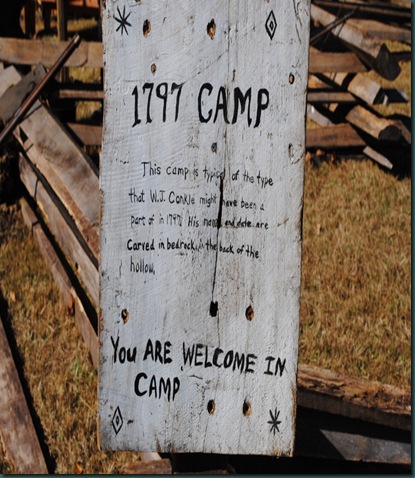 1797 CAMP
This camp is typical of the type
that W.J. Conkle might have been a
part of in 1797. His name and date are
carved in bedrock, in the back of the
hollow.
YOU ARE WELCOME IN
CAMP